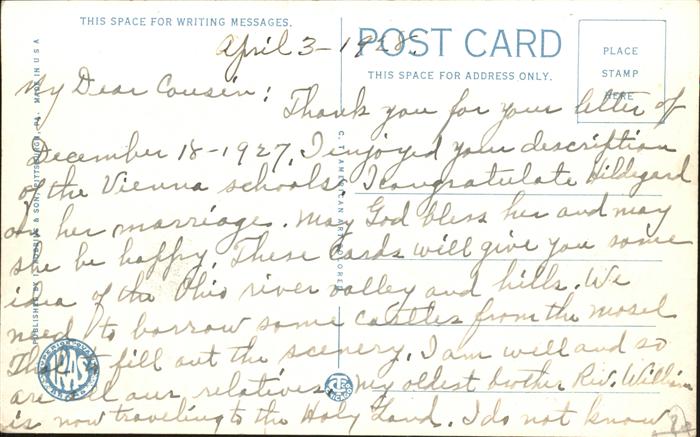 THIS SPACE FOR WRITING MESSAGES.
POST CARD
THIS SPACE FOR ADDRESS ONLY.
PLACE
STAMP
HERE
April 3-1928.
My Dear Cousin:
Thank you for your letter of
December 18-1927. I enjoyed your description
of the Vienna schools. I congratulate Hildegard
on her marriage. May God bless her and may
she be happy. These cards will give you some
idea of the Ohio river valley and hills. We
need to borrow some castles from the Mosel
to fill out the scenery. I am well and so
are all our relatives. My oldest brother Rev. William
is now traveling to the Holy Land. I do not know
C. T. AMERICAN ART COLORED
PUBLISHED BY & SON, PITTSBURGH, PA. MADE IN U S A